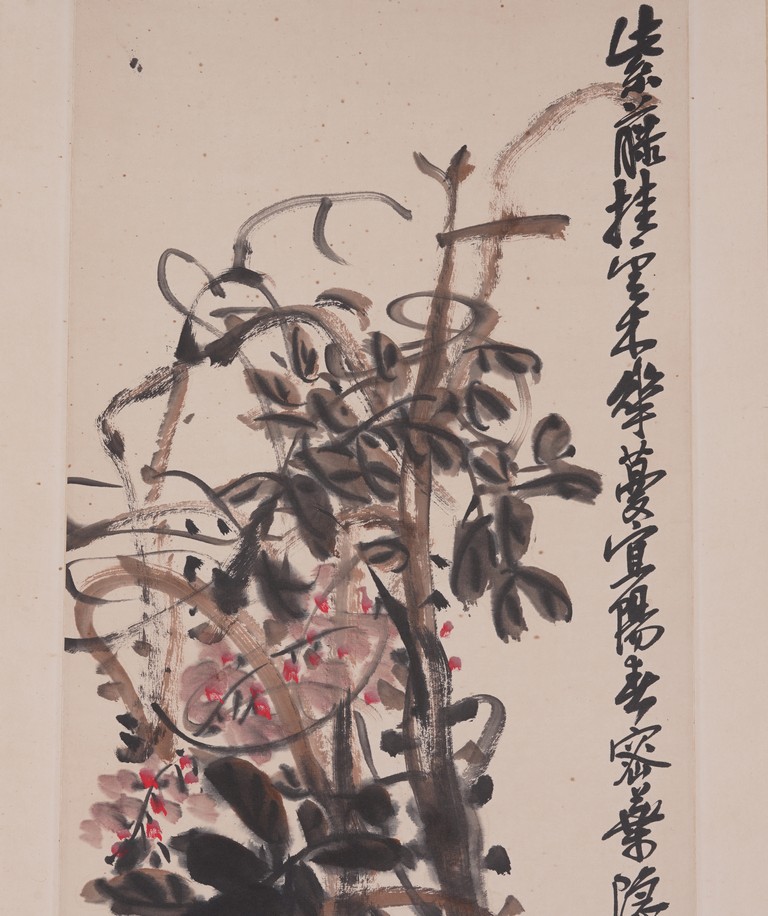 紫藤挂雲木華蔓宜陽春密葉隱